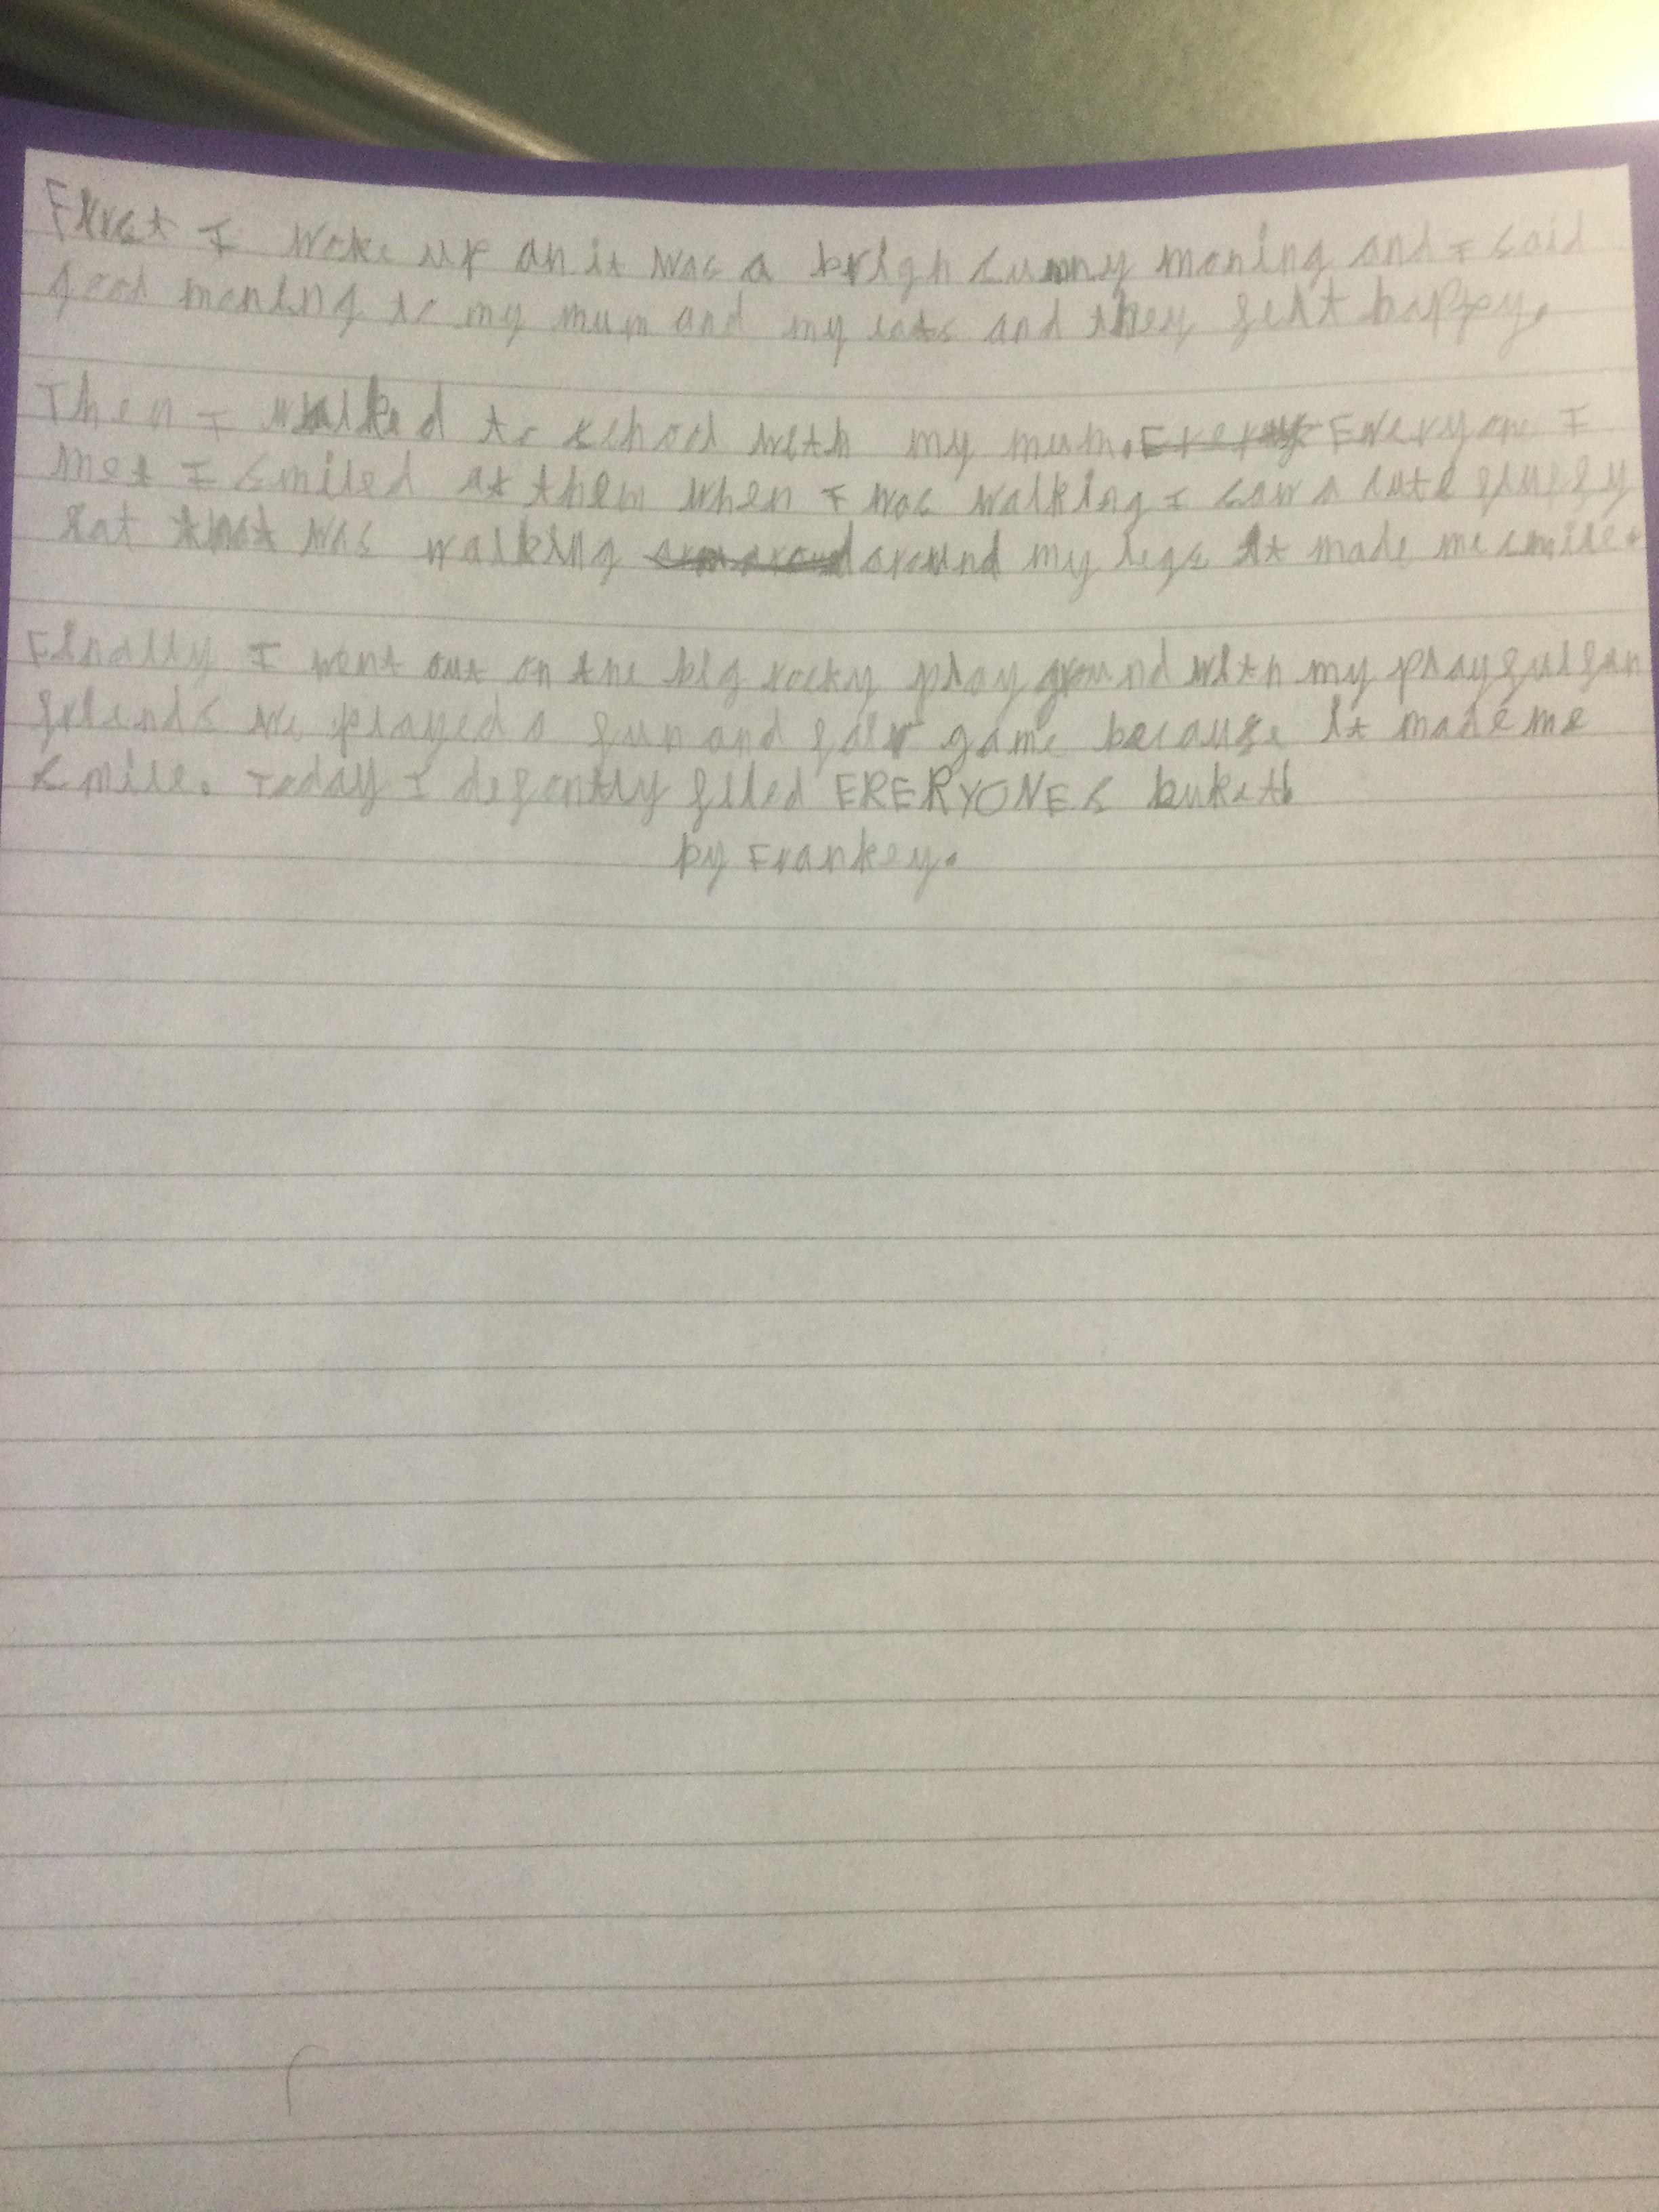 First I woke up an it was a brigh sunny moning and I said
good moning to my mum and my cats and they felt happy.
Then I walked to school with my mum. Everyone I
met I smiled at them when I was walking I saw a cute fluffy
cat that was walking around my legs it made me smile.
Finally I went out on the big rocky play ground with my playful fun
friends we played a fun and fair game because it made me
smile. Today I defantly filed ERERYONES buket
by Frankey.